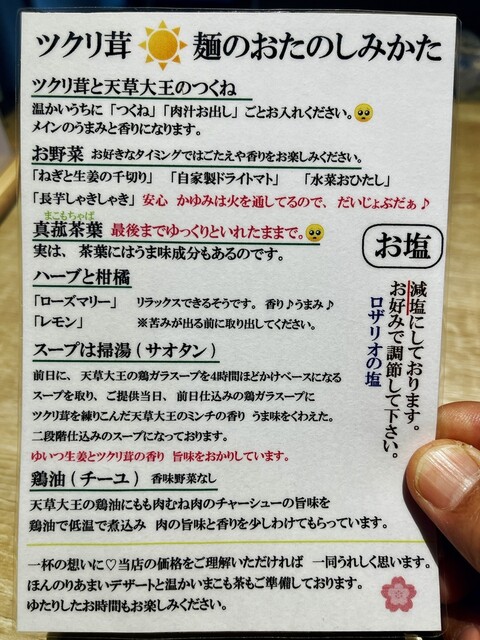 ツクリ茸☀麺のおたのしみかた
ツクリ茸と天草大王のつくね
温かいうちに「つくね」「肉汁お出し」ごとお入れください。🥺
メインのうまみと香りになります。
お野菜 お好きなタイミングではごたえや香りをお楽しみください。
「ねぎと生姜の千切り」 「自家製ドライトマト」 「水菜おひたし」
「長芋しゃきしゃき」安心 かゆみは火を通してるので、だいじょぶだぁ♪
まこもちゃば
真菰茶葉 最後までゆっくりといれたままで。🥺
実は、茶葉にはうま味成分もあるのです。
ハーブと柑橘
「ローズマリー」 リラックスできるそうです。香り♪うまみ♪
「レモン」 ※苦みが出る前に取り出してください。
お塩
減塩にしております。
お好みで調節して下さい。
ロザリオの塩
スープは掃湯(サオタン)
前日に、天草大王の鶏ガラスープを4時間ほどかけベースになる
スープを取り、ご提供当日、前日仕込みの鶏ガラスープに
ツクリ茸を練りこんだ天草大王のミンチの香り うま味をくわえた。
二段階仕込みのスープになっております。
ゆいつ生姜とツクリ茸の香り 旨味をおかりしています。
鶏油(チーユ) 香味野菜なし
天草大王の鶏油にもも肉むね肉のチャーシューの旨味を
鶏油で低温で煮込み 肉の旨味と香りを少しわけてもらっています。
一杯の想いに♡当店の価格をご理解いただければ 一同うれしく思います。
ほんのりあまいデザートと温かいまこも茶もご準備しております。
ゆたりしたお時間もお楽しみください。